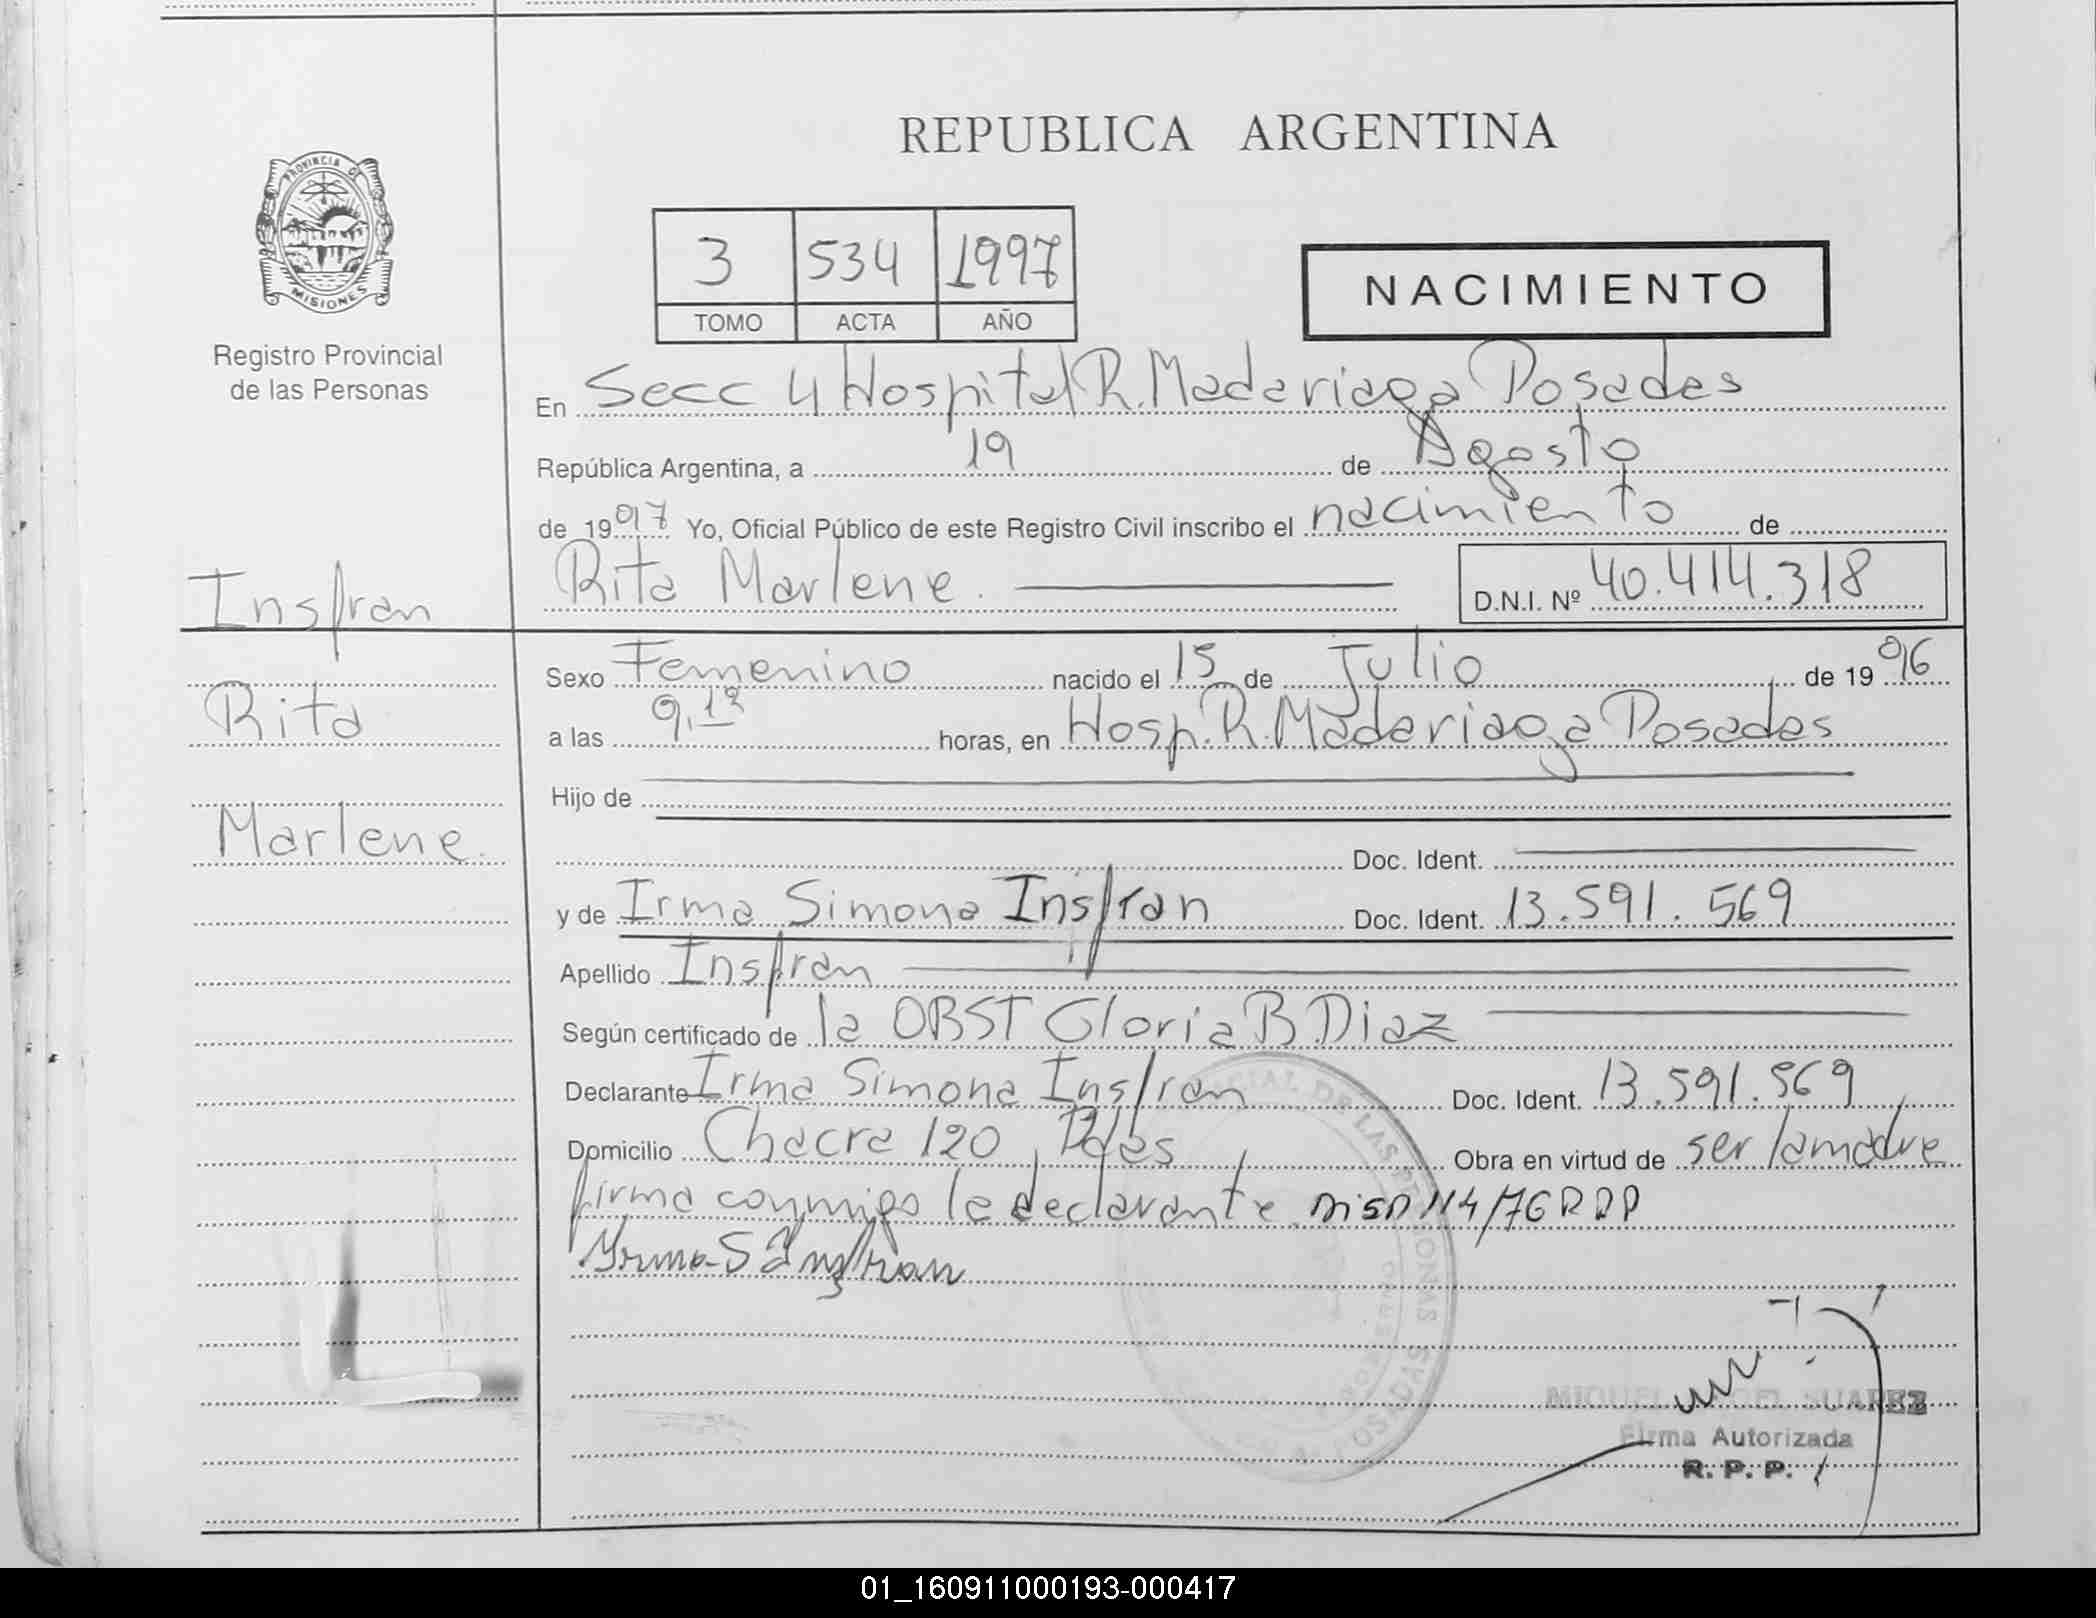 REPUBLICA ARGENTINA
PROVINCIA DE
MISIONES
Registro Provincial
de las Personas
3 534 1997
TOMO ACTA AÑO
NACIMIENTO
En Secc 4 Hospital R. Madariaga Posadas
República Argentina, a 19 de Agosto
de 1997 Yo, Oficial Público de este Registro Civil inscribo el nacimiento de
Insfran
Rita Marlene. D.N.I. Nº 40.414.318
Sexo Femenino nacido el 15 de Julio de 1996
Rita
a las 9,13 horas, en Hosp. R. Madariaga Posadas
Hijo de
Marlene.
Doc. Ident.
y de Irma Simona Insfran Doc. Ident. 13.591.569
Apellido Insfran
Según certificado de la OBST Gloria B. Diaz
Declarante Irma Simona Insfran Doc. Ident. 13.591.569
Domicilio Chacra 120, Pdas Obra en virtud de ser la madre
firma conmigo la declarante. Disp 114/76 RPP
Yrma S Insfran
DE LAS PERSONAS
GOBIERNO
POSADAS
MIGUEL ANGEL SUAREZ
Firma Autorizada
R. P. P.
01_160911000193-000417